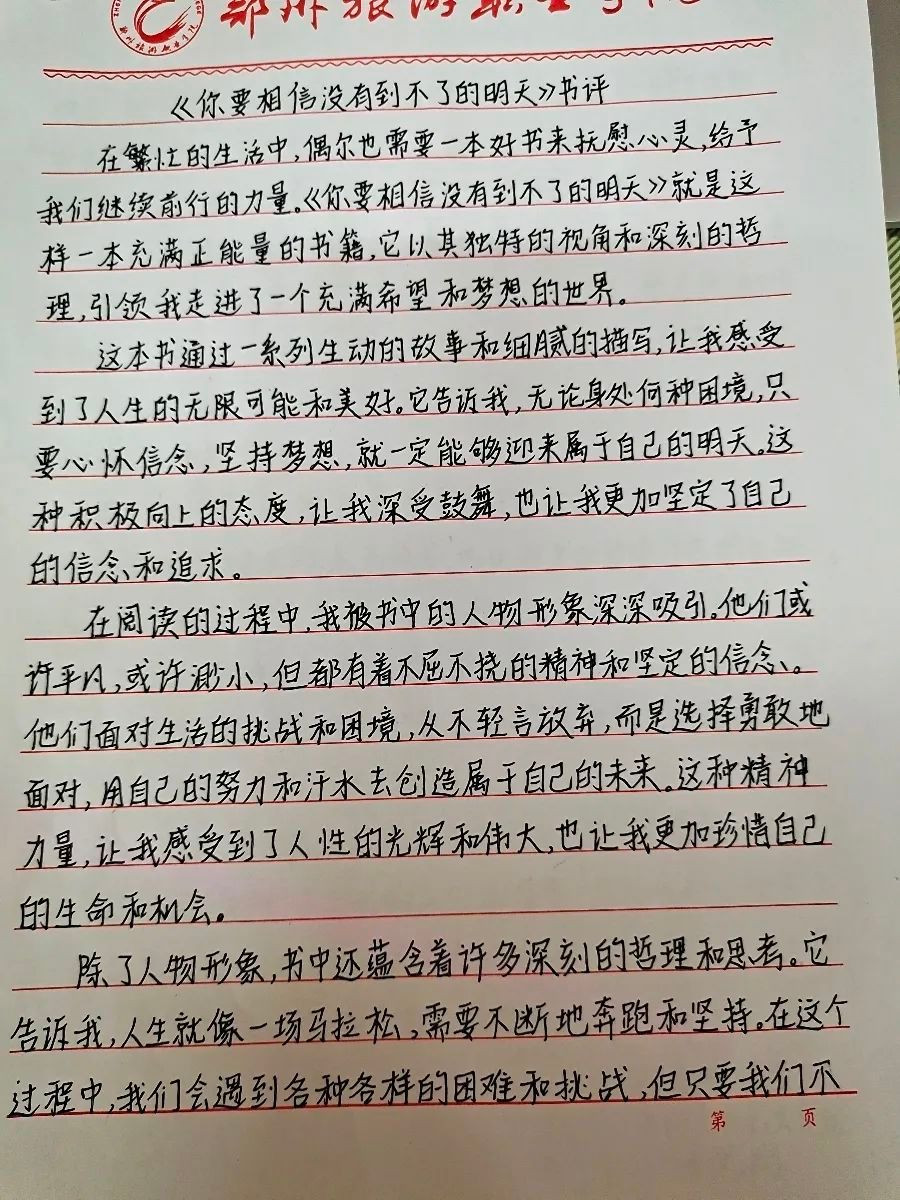 郑州旅游职业学院
郑州旅游职业学院
《你要相信没有到不了的明天》书评
在繁忙的生活中,偶尔也需要一本好书来抚慰心灵,给予
我们继续前行的力量。《你要相信没有到不了的明天》就是这
样一本充满正能量的书籍,它以其独特的视角和深刻的哲
理,引领我走进了一个充满希望和梦想的世界。
这本书通过一系列生动的故事和细腻的描写,让我感受
到了人生的无限可能和美好。它告诉我,无论身处何种困境,只
要心怀信念,坚持梦想,就一定能够迎来属于自己的明天。这
种积极向上的态度,让我深受鼓舞,也让我更加坚定了自己
的信念和追求。
在阅读的过程中,我被书中的人物形象深深吸引。他们或
许平凡,或许渺小,但都有着不屈不挠的精神和坚定的信念。
他们面对生活的挑战和困境,从不轻言放弃,而是选择勇敢地
面对,用自己的努力和汗水去创造属于自己的未来。这种精神
力量,让我感受到了人性的光辉和伟大,也让我更加珍惜自己
的生命和机会。
除了人物形象,书中还蕴含着许多深刻的哲理和思考。它
告诉我,人生就像一场马拉松,需要不断地奔跑和坚持。在这个
过程中,我们会遇到各种各样的困难和挑战,但只要我们不
第 页